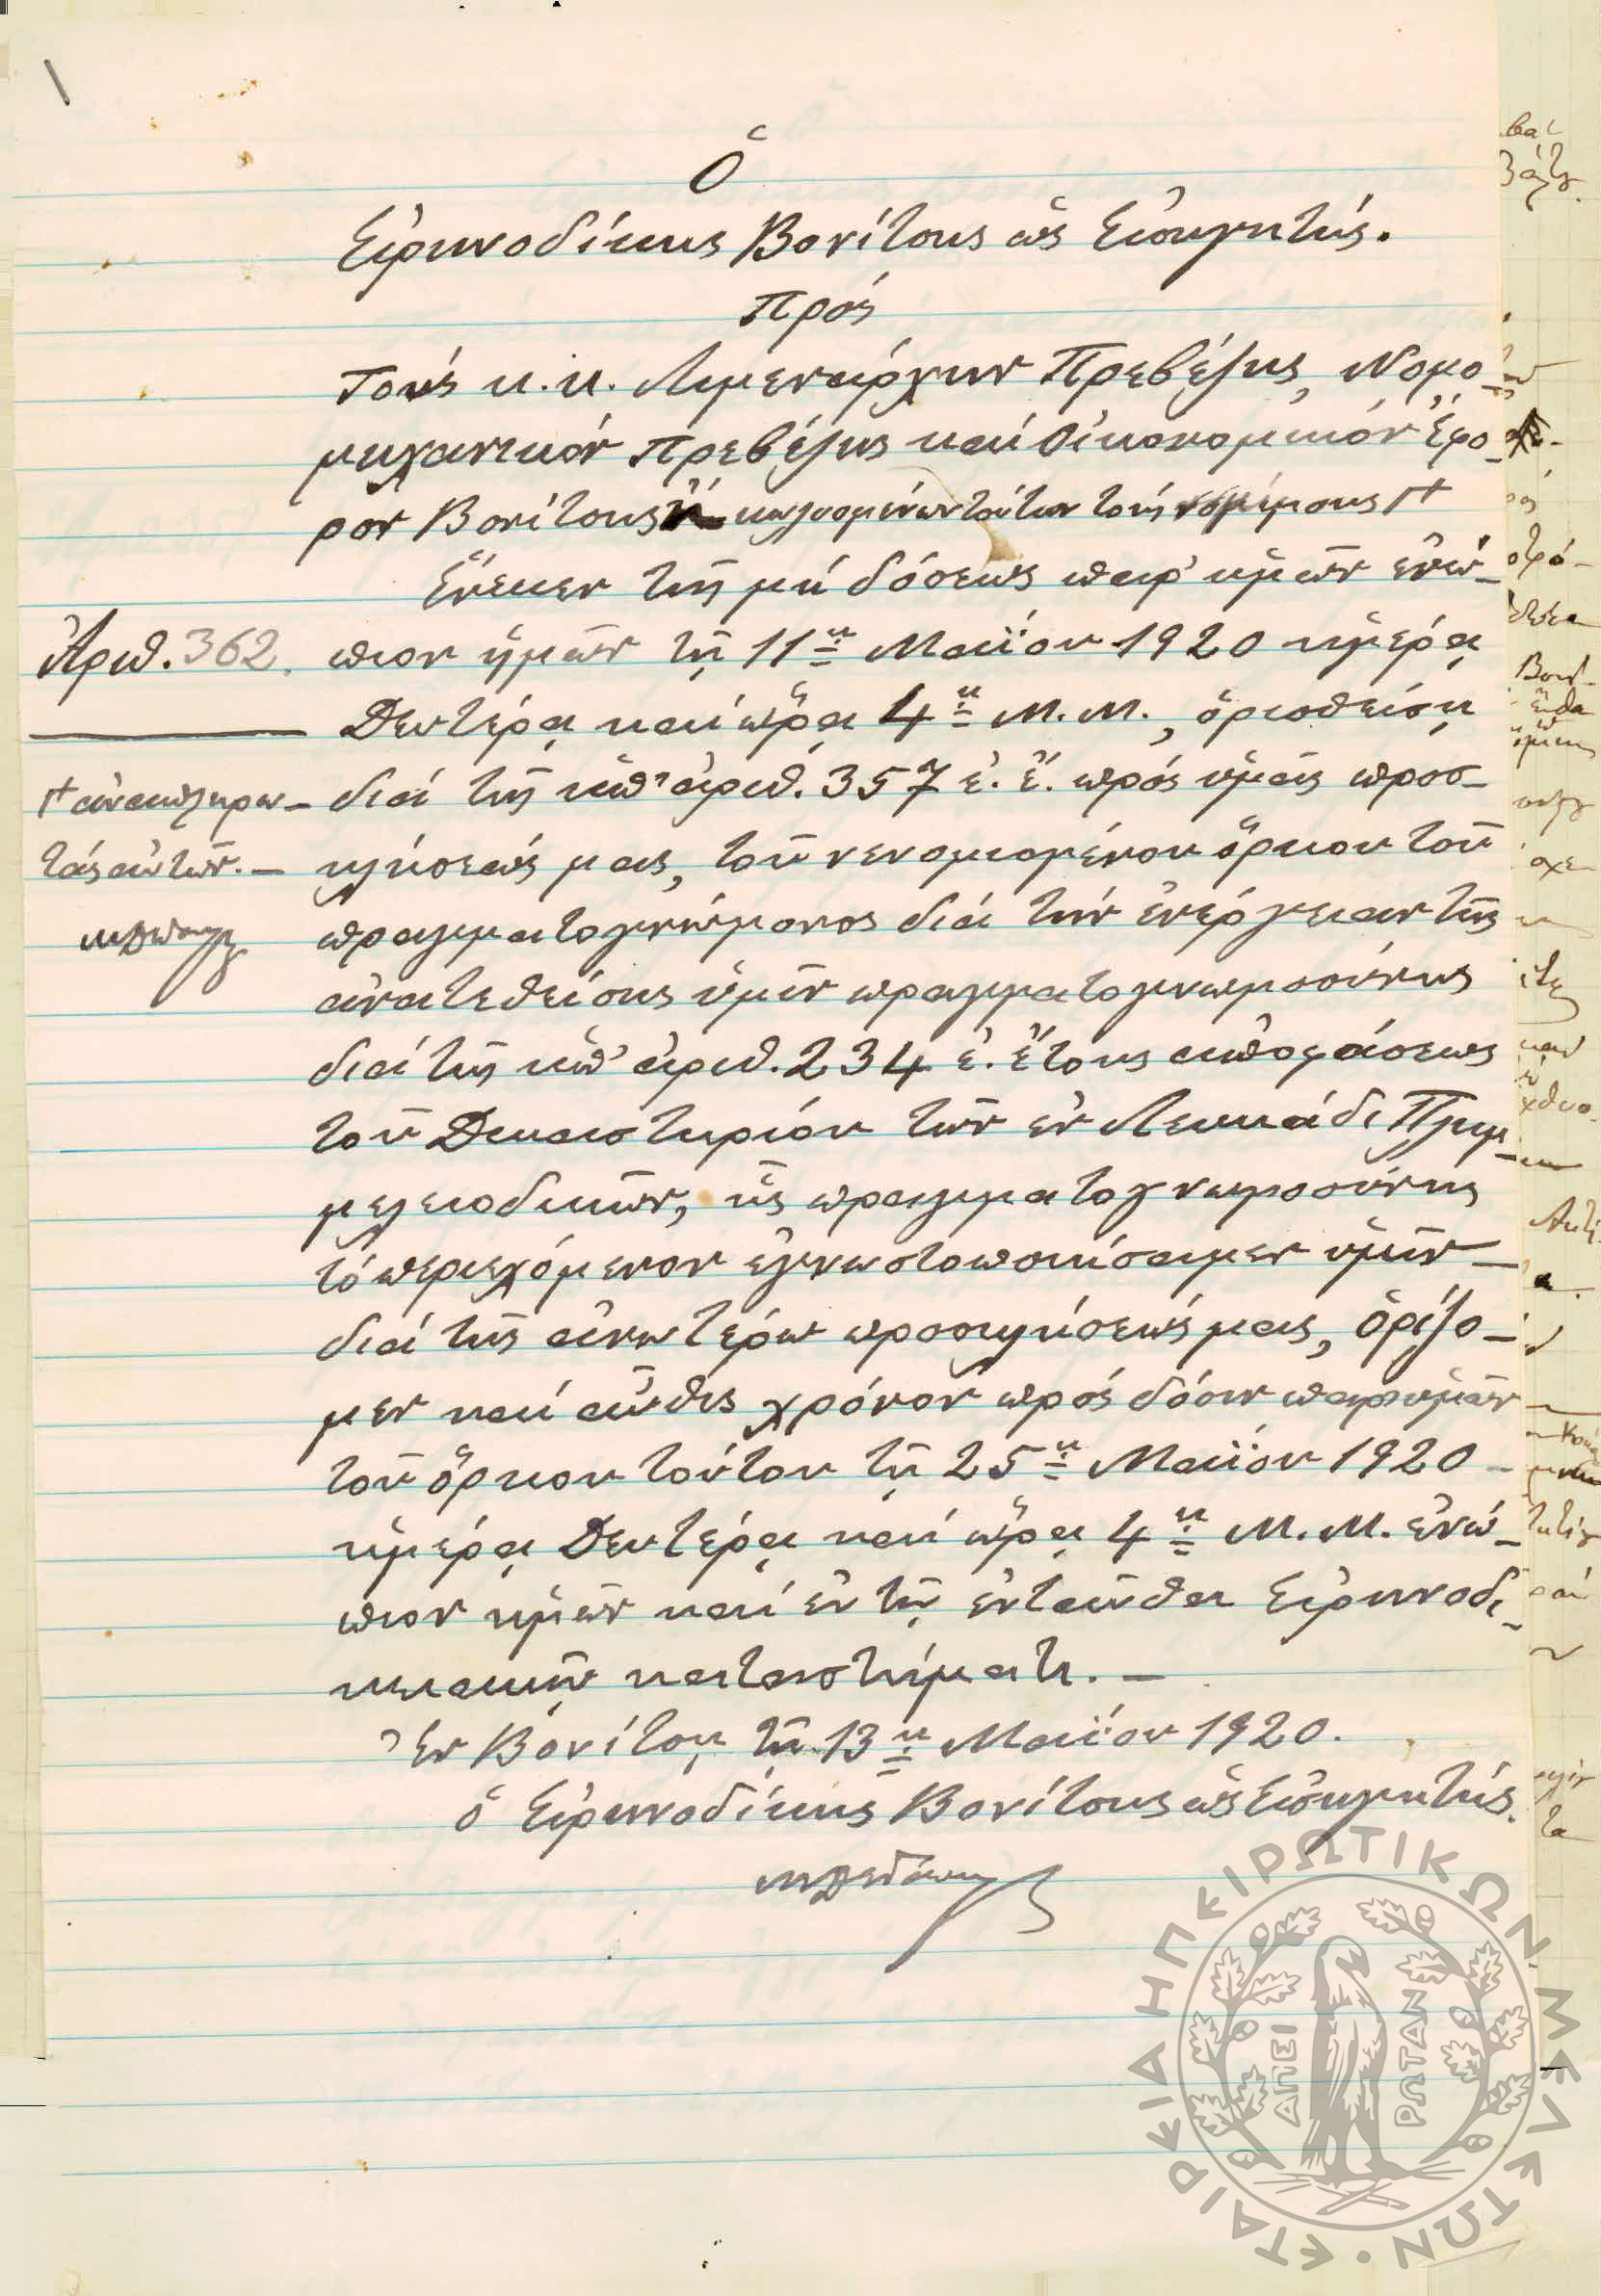 Ὁ
Εἰρηνοδίκης Βονίτσης ὡς Εἰσηγητής.
Πρός
Τούς κ.κ. Λιμενάρχην Πρεβέζης, Νομο-
μηχανικόν Πρεβέζης καί Οἰκονομικόν Ἔφο-
ρον Βονίτσης ἤ κωλυομένων τούτων τούς νομίμους +
Ἕνεκεν τῆς μή δόσεως παρ' ὑμῶν ἐνώ-
Ἀριθ. 362.
πιον ἡμῶν τῇ 11ῃ Μαΐου 1920 ἡμέρᾳ
Δευτέρᾳ καί ὥρᾳ 4ῃ Μ.Μ., ὁρισθείσῃ
+ ἀναπληρω-
τάς αὐτῶν.-
διά τῆς ὑπ' ἀριθ. 357 ἐ. ἔ. πρός ὑμᾶς προσ-
κλήσεώς μας, τοῦ νενομισμένου ὅρκου τοῦ
πραγματογνώμονος διά τήν ἐνέργειαν τῆς
ἀνατεθείσης ὑμῖν πραγματογνωμοσύνης
διά τῆς ὑπ' ἀριθ. 234 ἐ. ἔτους ἀποφάσεως
τοῦ Δικαστηρίου τῶν ἐν Λευκάδι Πλημ-
μελειοδικῶν, ἧς πραγματογνωμοσύνης
τό περιεχόμενον ἐγνωστοποιήσαμεν ὑμῖν -
διά τῆς ἀνωτέρω προσκλήσεώς μας, ὁρίζο-
μεν καί αὖθις χρόνον πρός δόσιν παρ' ὑμῶν
τοῦ ὅρκου τούτου τῇ 25ῃ Μαΐου 1920 -
ἡμέρᾳ Δευτέρᾳ καί ὥρᾳ 4ῃ Μ.Μ. ἐνώ-
πιον ἡμῶν καί ἐν τῷ ἐνταῦθα Εἰρηνοδι-
κειακῷ καταστήματι. -
Ἐν Βονίτσῃ τῇ 13ῃ Μαΐου 1920.
ὁ Εἰρηνοδίκης Βονίτσης ὡς Εἰσηγητής.
ΕΤΑΙΡΕΙΑ ΗΠΕΙΡΩΤΙΚΩΝ ΜΕΛΕΤΩΝ
ΑΠΕΙ
ΡΩΤΑΝ